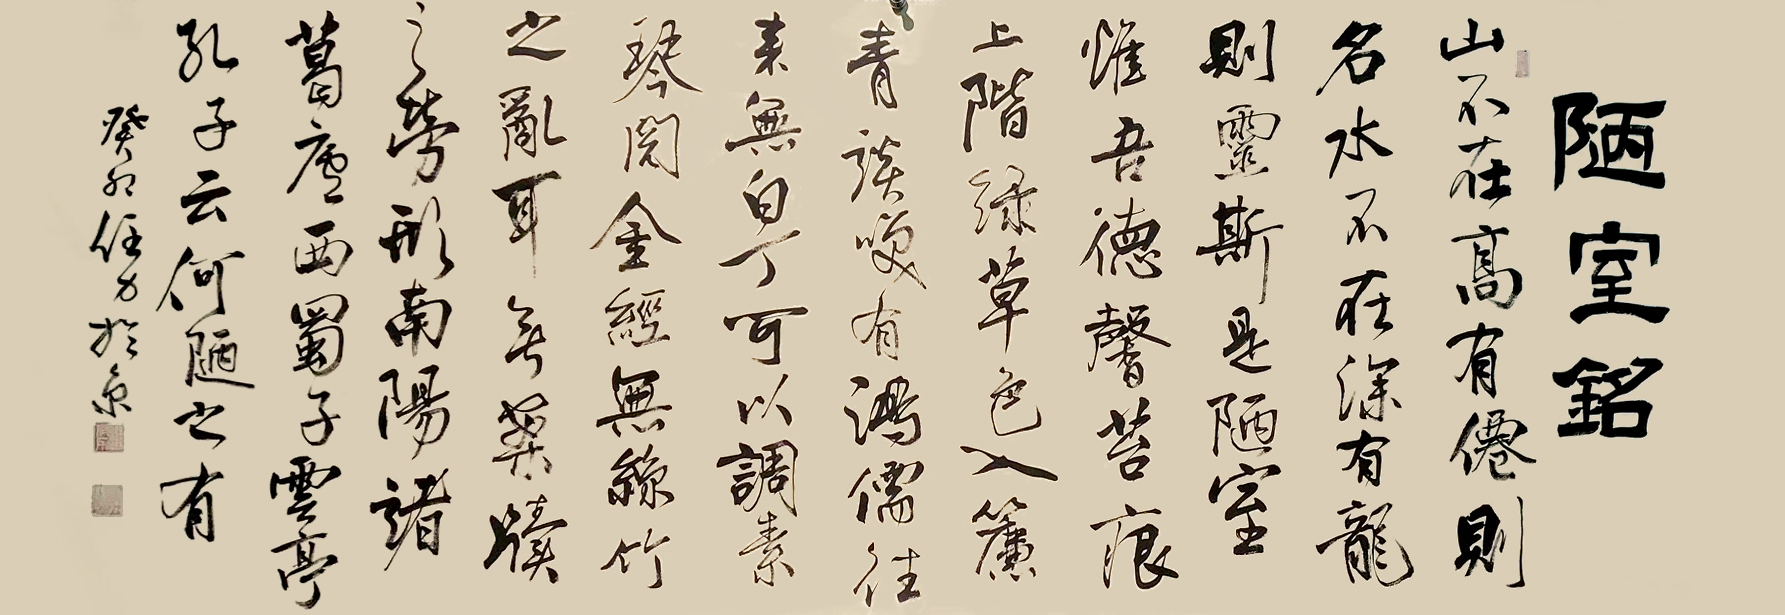 陋室銘
山不在高有僊則
名水不在深有龍
則靈斯是陋室
惟吾德馨苔痕
上階緑草色入簾
青談笑有鴻儒往
來無白丁可以調素
琴閱金經無絲竹
之亂耳無案牘
之勞形南陽諸
葛廬西蜀子雲亭
孔子云何陋之有
癸卯任力於京